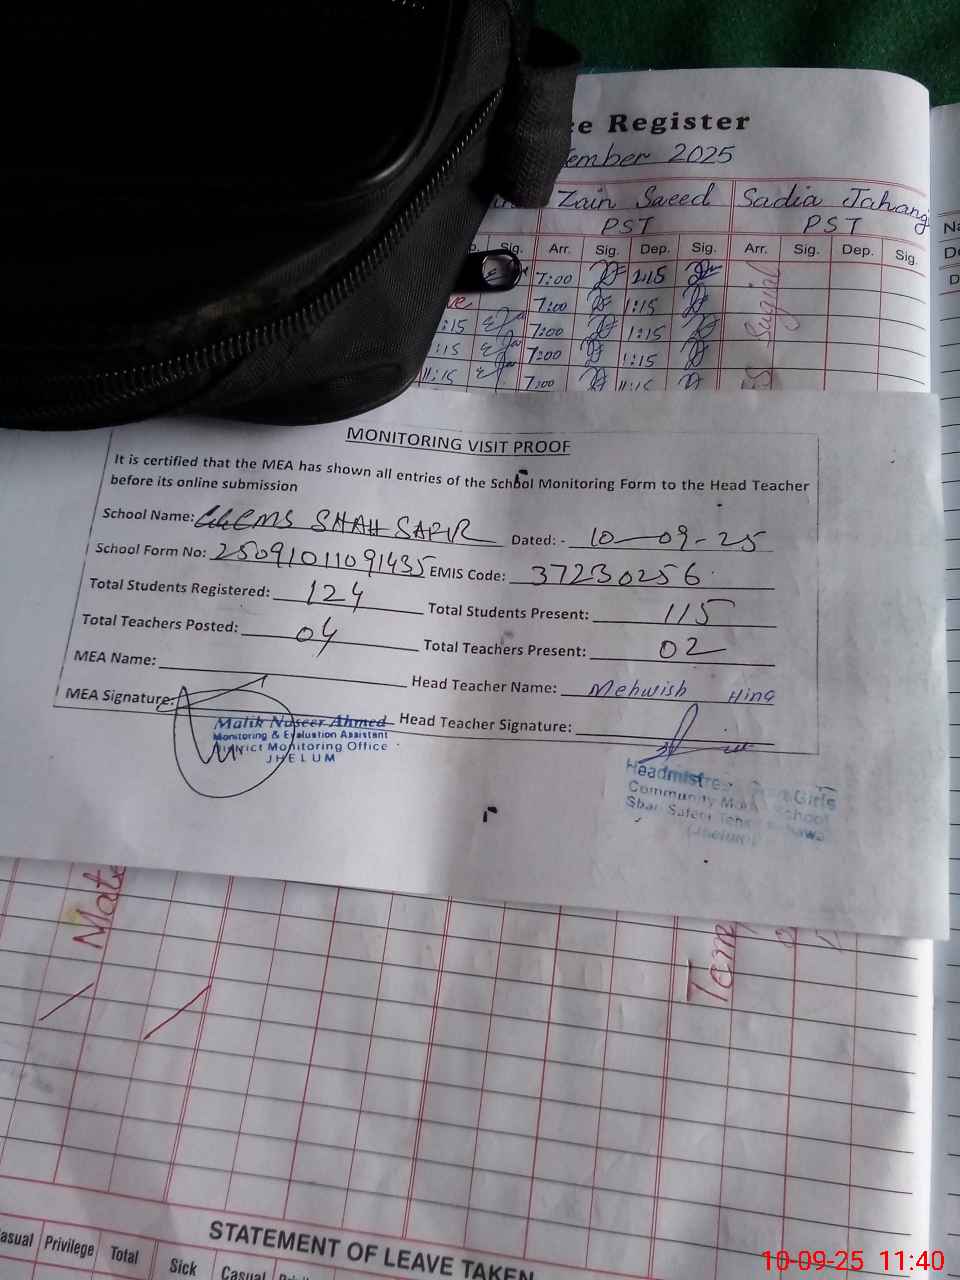 e Register
ember 2025
Zain Saeed Sadia Jahang
PST PST
Sig. Arr. Sig. Dep. Sig. Arr. Sig. Dep. Sig.
7:00 1:15
7:00 1:15
:15 7:00 1:15
:15 7:00 1:15
11:15 7:00 11:15
MONITORING VISIT PROOF
It is certified that the MEA has shown all entries of the School Monitoring Form to the Head Teacher
before its online submission
School Name: GGCMS SHAH SAFIR Dated: - 10-09-25
School Form No: 25091011091435 EMIS Code: 37230256
Total Students Registered: 124 Total Students Present: 115
Total Teachers Posted: 04 Total Teachers Present: 02
MEA Name: Head Teacher Name: Mehwish Hina
MEA Signature: Head Teacher Signature:
Malik Naseer Ahmed
Monitoring & Evaluation Assistant
District Monitoring Office
JHELUM
Headmistre Girls
Community School
STATEMENT OF LEAVE TAKEN
asual Privilege Total Sick Casual
10-09-25 11:40